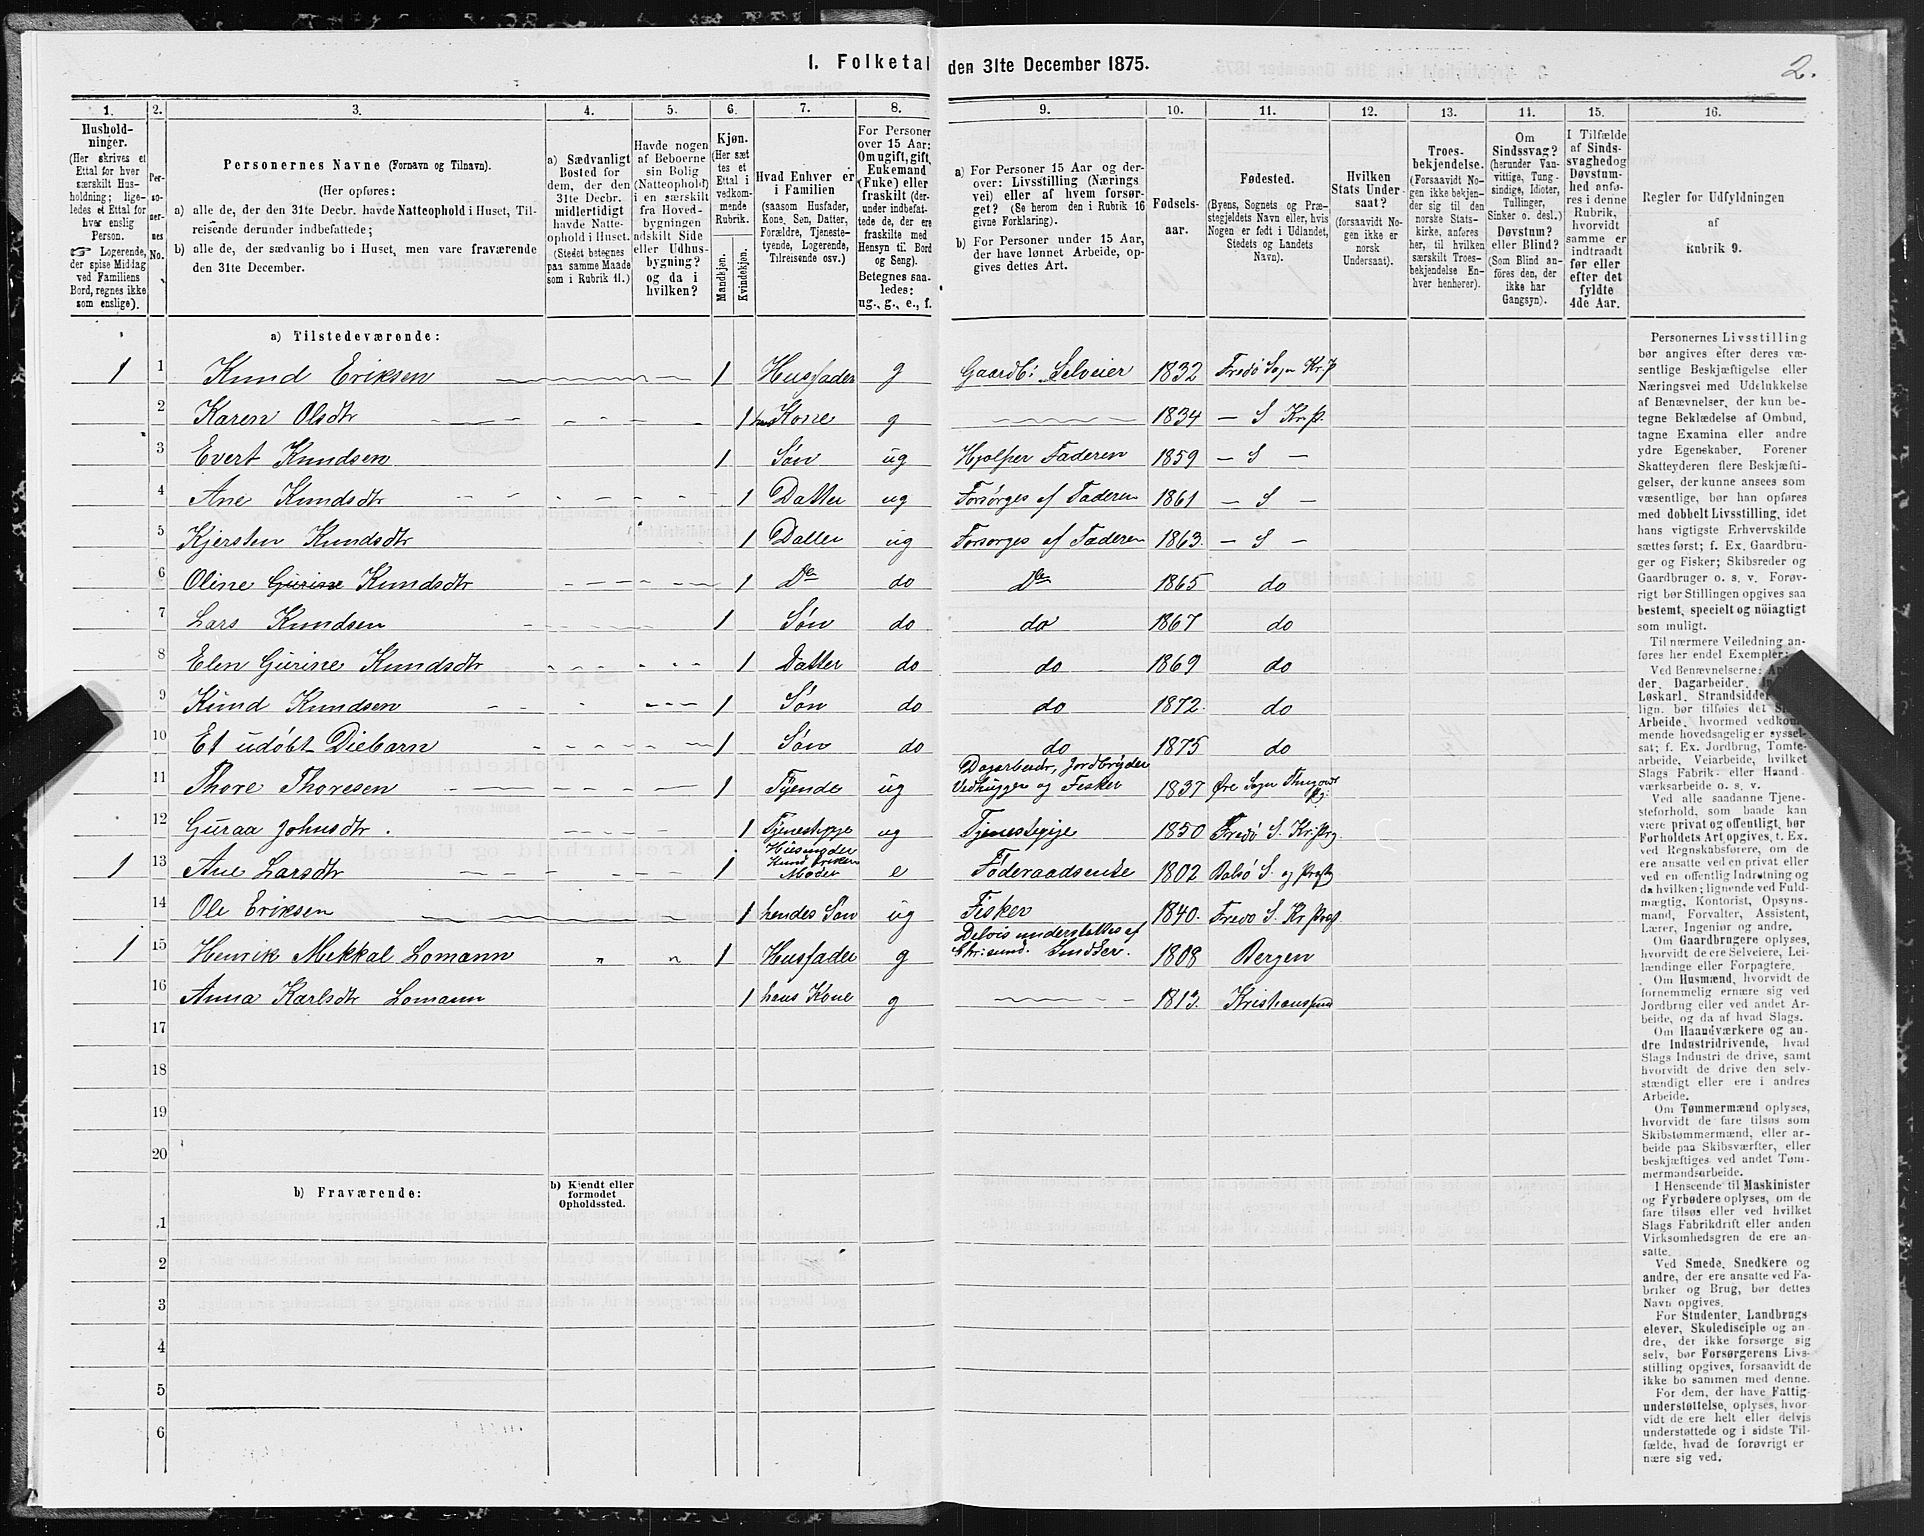 1. Folketal den 31te December 1875.
2.
1. 2. 3. 4. 5. 6. 7. 8. 9. 10. 11. 12. 13. 14. 15. 16.
Hushold-
ninger.
(Her skrives et
Ettal for hver
særskilt Hus-
holdning; lige-
ledes et Ettal for
hver enslig
Person.
☞ Logerende,
der spise Middag
ved Familiens
Bord, regnes ikke
som enslige).
Per-
so-
ner-
nes
No.
Personernes Navne (Fornavn og Tilnavn).
(Her opføres:
a) alle de, der den 31te Decbr. havde Natteophold i Huset, Til-
reisende derunder indbefattede;
b) alle de, der sædvanlig bo i Huset, men vare fraværende
den 31te December.
a) Sædvanligt
Bosted for
dem, der den
31te Decbr.
midlertidigt
havde Natte-
ophold i Huset.
(Stedet betegnes
paa samme Maade
som i Rubrik 11.)
Havde nogen
af Beboerne
sin Bolig
(Natteophold)
i en særskilt
fra Hoved-
bygningen
adskilt Side
eller Udhus-
bygning?
og da i
hvilken?
Kjøn.
(Her sæt
tes et
Ettal i
vedkom-
mende
Rubrik.
Mandkjøn.
Kvindekjøn.
Hvad Enhver er
i Familien
(saasom Husfader,
Kone, Søn, Datter,
Forældre, Tjeneste-
tyende, Logerende,
Tilreisende osv.)
For Personer
over 15 Aar:
Om ugift, gift,
Enkemand
(Enke) eller
fraskilt (der-
under indbefat-
tede de, der ere
fraskilte med
Hensyn til Bord
og Seng).
Betegnes saa-
ledes:
ug., g., e., f.
a) For Personer 15 Aar og der-
over: Livsstilling (Nærings
vei) eller af hvem forsør-
get? (Se herom den i Rubrik 16
givne Forklaring).
b) For Personer under 15 Aar,
der have lønnet Arbeide, op-
gives dettes Art.
Fødsels-
aar.
Fødested.
(Byens, Sognets og Præ-
stegjeldets Navn eller, hvis
Nogen er født i Udlandet,
Stedets og Landets
Navn).
Hvilken
Stats Under-
saat?
(forsaavidt No-
gen ikke er
norsk
Undersaat).
Troes-
bekjendelse.
(Forsaavidt No-
gen ikke bekjen-
der sig til den
norske Stats-
kirke, anføres
her, til hvilken
særskilt Troes-
bekjendelse En-
hver henhører).
Om
Sindssvag?
(herunder Van-
vittige, Tung-
sindige, Idioter,
Tullinger,
Sinker o. desl.)
Døvstum?
eller Blind?
(Som Blind an-
føres den, der
ikke har
Gangsyn).
I Tilfælde
af Sinds-
svaghed og
Døvstum-
hed anfø-
res i denne
Rubrik,
hvorvidt
samme er
indtraadt
før eller
efter det
fyldte
4de Aar.
Regler for Udfyldningen
af
Rubrik 9.
a) Tilstedeværende:
1 1 Knud Eriksen 1 Husfader g Gaardb: Selveier 1832 Fredø Sogn Kr. P
2 Karen Olsdtr 1 hans Kone g 1834 — S Kr. P.
3 Evert Knudsen 1 Søn ug Hjælper Faderen 1859 — S —
4 Ane Knudsdtr 1 Datter ug Forsørges af Faderen 1861 — S —
5 Kjersten Knudsdtr 1 Datter ug Forsørges af Faderen 1863. — S —
6 Oline Gurine Knudsdtr 1 Do do Do 1865 do
7 Lars Knudsen 1 Søn do do 1867 do
8 Elen Gurine Knudsdtr 1 Datter do do 1869 do
9 Knud Knudsen 1 Søn do do 1872. do
10 Et udøbt Diebarn 1 Søn do do 1875 do
11 Thore Thoresen 1 Tjende ug Dagarbeidr, Jordbryder
Vedhugger og Fisker 1837 Øre Sogn
12 Guraa Johnsdtr. 1 ug 1850 Fredø S. Kr. Prg
1 13 Ane Larsdtr 1 Husmoder
Knud Eriksen
Moder e Føderaadsenke 1802 S. og
14 Ole Eriksen 1 hendes Søn ug Fisker 1840. Fredø S. Kr
1 15 Henrik Mekkal Lomann „ „ 1 Husfader g Delvis understøttes af
Chr:sund. 1808 Bergen
16 Anna Karlsdtr Lomann 1 hans Kone g 1813. Kristiansund
17
18
19
20
b) Fraværende:
b) Kjendt eller
formodet
Opholdssted.
1
2
3
4
5
6
Personernes Livsstilling
bør angives efter deres væ-
sentlige Beskjæftigelse eller
Næringsvei med Udelukkelse
af Benævnelser, der kun be-
tegne Beklædelse af Ombud,
tagne Examina eller andre
ydre Egenskaber. Forener
Skatteyderen flere Beskjæfti-
gelser, der kunne ansees som
væsentlige, bør han opføres
med dobbelt Livsstilling, idet
hans vigtigste Erhvervskilde
sættes først; f. Ex. Gaardbru-
ger og Fisker; Skibsreder og
Gaardbruger o. s. v. Forøv-
rigt bør Stillingen opgives saa
bestemt, specielt og nøiagtigt
som muligt.
Til nærmere Veiledning an-
føres her endel Exempler:
Ved Benævnelserne:
der, Dagarbeider,
Løskarl, Strandsidder
lign. bør tilføies det
Arbeide, hvormed vedkom-
mende hovedsagelig er syssel-
sat; f. Ex. Jordbrug, Tomte-
arbeide, Veiarbeide, hvilket
Slags Fabrik- eller Haand-
værksarbeide o. s. v.
Ved alle saadanne Tjene-
steforhold, som baade kan
være privat og offentligt, bør
Forholdets Art opgives, t. Ex.
ved Regnskabsførere, om de
ere ansatte ved en privat eller
ved en offentlig Indretning og
da hvilken; lignende ved Fuld-
mægtig, Kontorist, Opsyns-
mand, Forvalter, Assistent,
Lærer, Ingeniør og andre.
Om Gaardbrugere oplyses,
hvorvidt de ere Selveiere, Lei-
lændinge eller Forpagtere.
Om Husmænd, hvorvidt de
fornemmelig ernære sig ved
Jordbrug eller ved andet Ar-
beide, og da af hvad Slags.
Om Haandværkere og an-
dre Industridrivende, hvad
Slags Industri de drive, samt
hvorvidt de drive den selv-
stændigt eller ere i andres
Arbeide.
Om Tømmermænd oplyses,
hvorvidt de fare tilsøs som
Skibstømmermænd, eller ar-
beide paa Skibsværfter, eller
beskjæftiges ved andet Tøm-
mermandsarbeide.
I Henseende til Maskinister
og Fyrbødere oplyses, om de
fare tilsøs eller ved hvilket
Slags Fabrikdrift eller anden
Virksomhedsgren de ere an-
satte.
Ved Smede, Snedkere og
andre, der ere ansatte ved Fa-
briker og Brug, bør dettes
Navn opgives.
For Studenter, Landbrugs
elever, Skoledisciple og an-
dre, der ikke forsørge sig
selv, bør Forsørgerens Livs-
stilling opgives, forsaavidt de
ikke bo sammen med denne.
For dem, der have Fattig-
understøttelse, oplyses, hvor-
vidt de ere helt eller delvis
understøttede og i sidste Til-
fælde, hvad de forøvrigt er
nære sig ved.